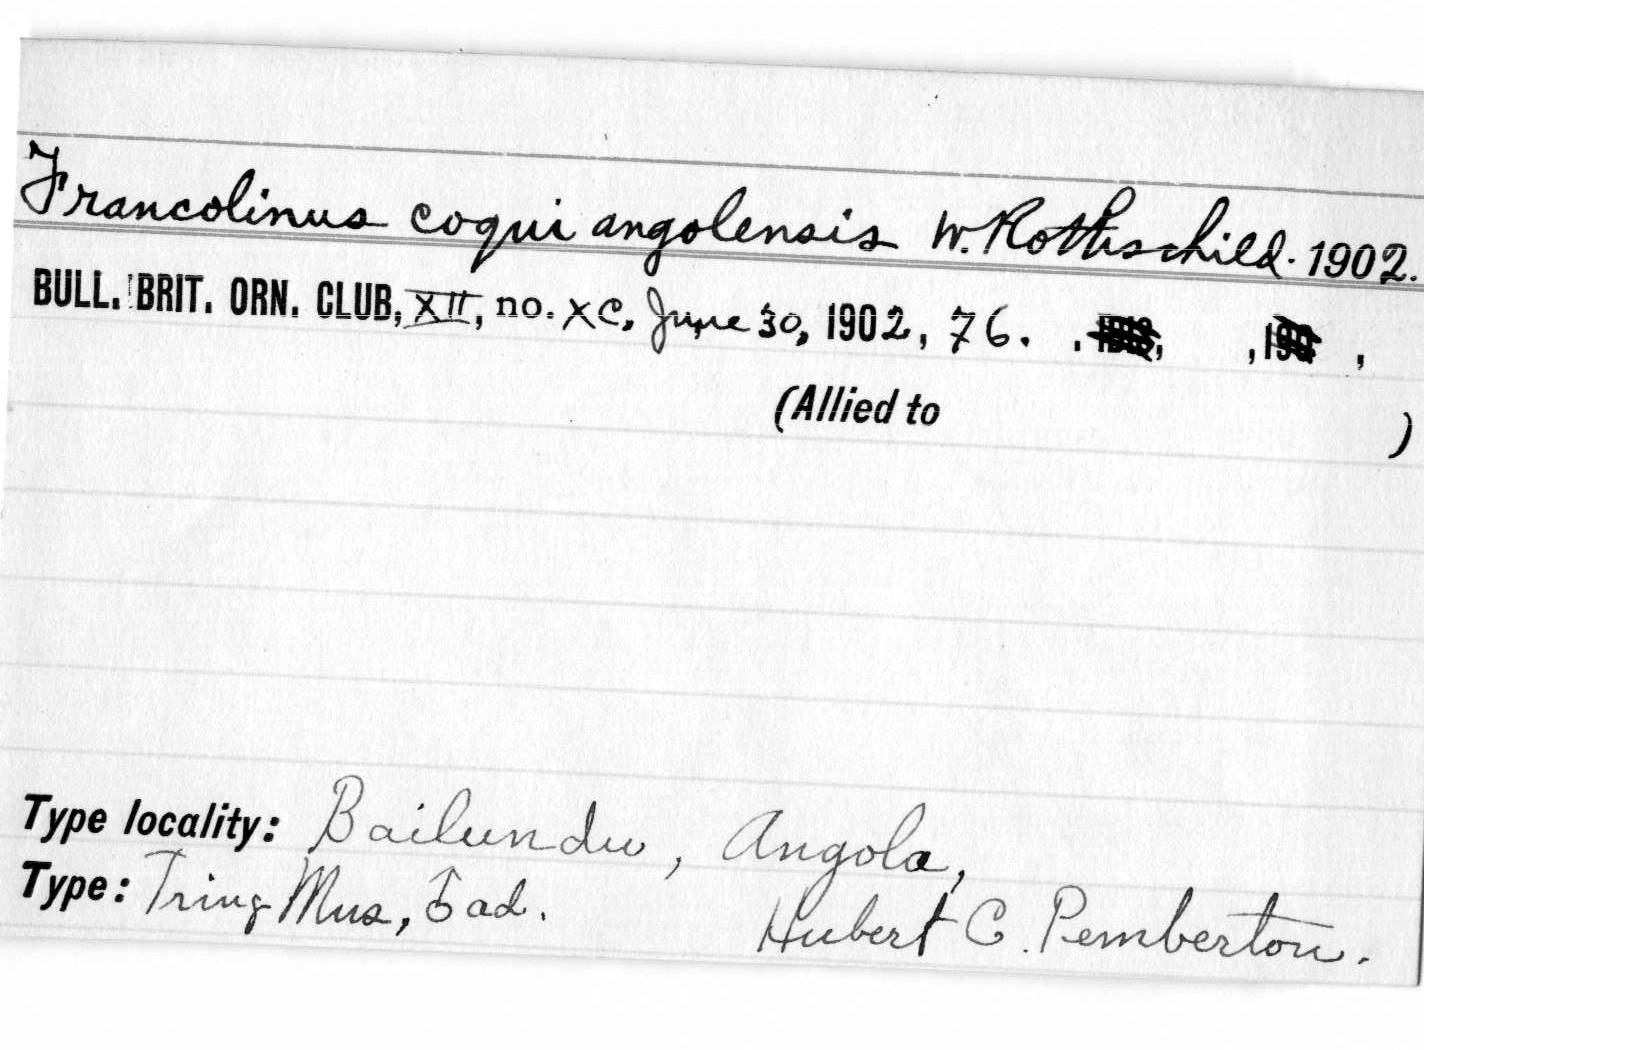 Francolinus coqui angolensis W. Rothschild. 1902.
BULL. BRIT. ORN. CLUB, XII, no. XC, June 30, 1902, 76. . , , 19 ,
(Allied to )
Type locality: Bailundu, Angola,
Type: Tring Mus, ♂ ad. Hubert C. Pemberton.